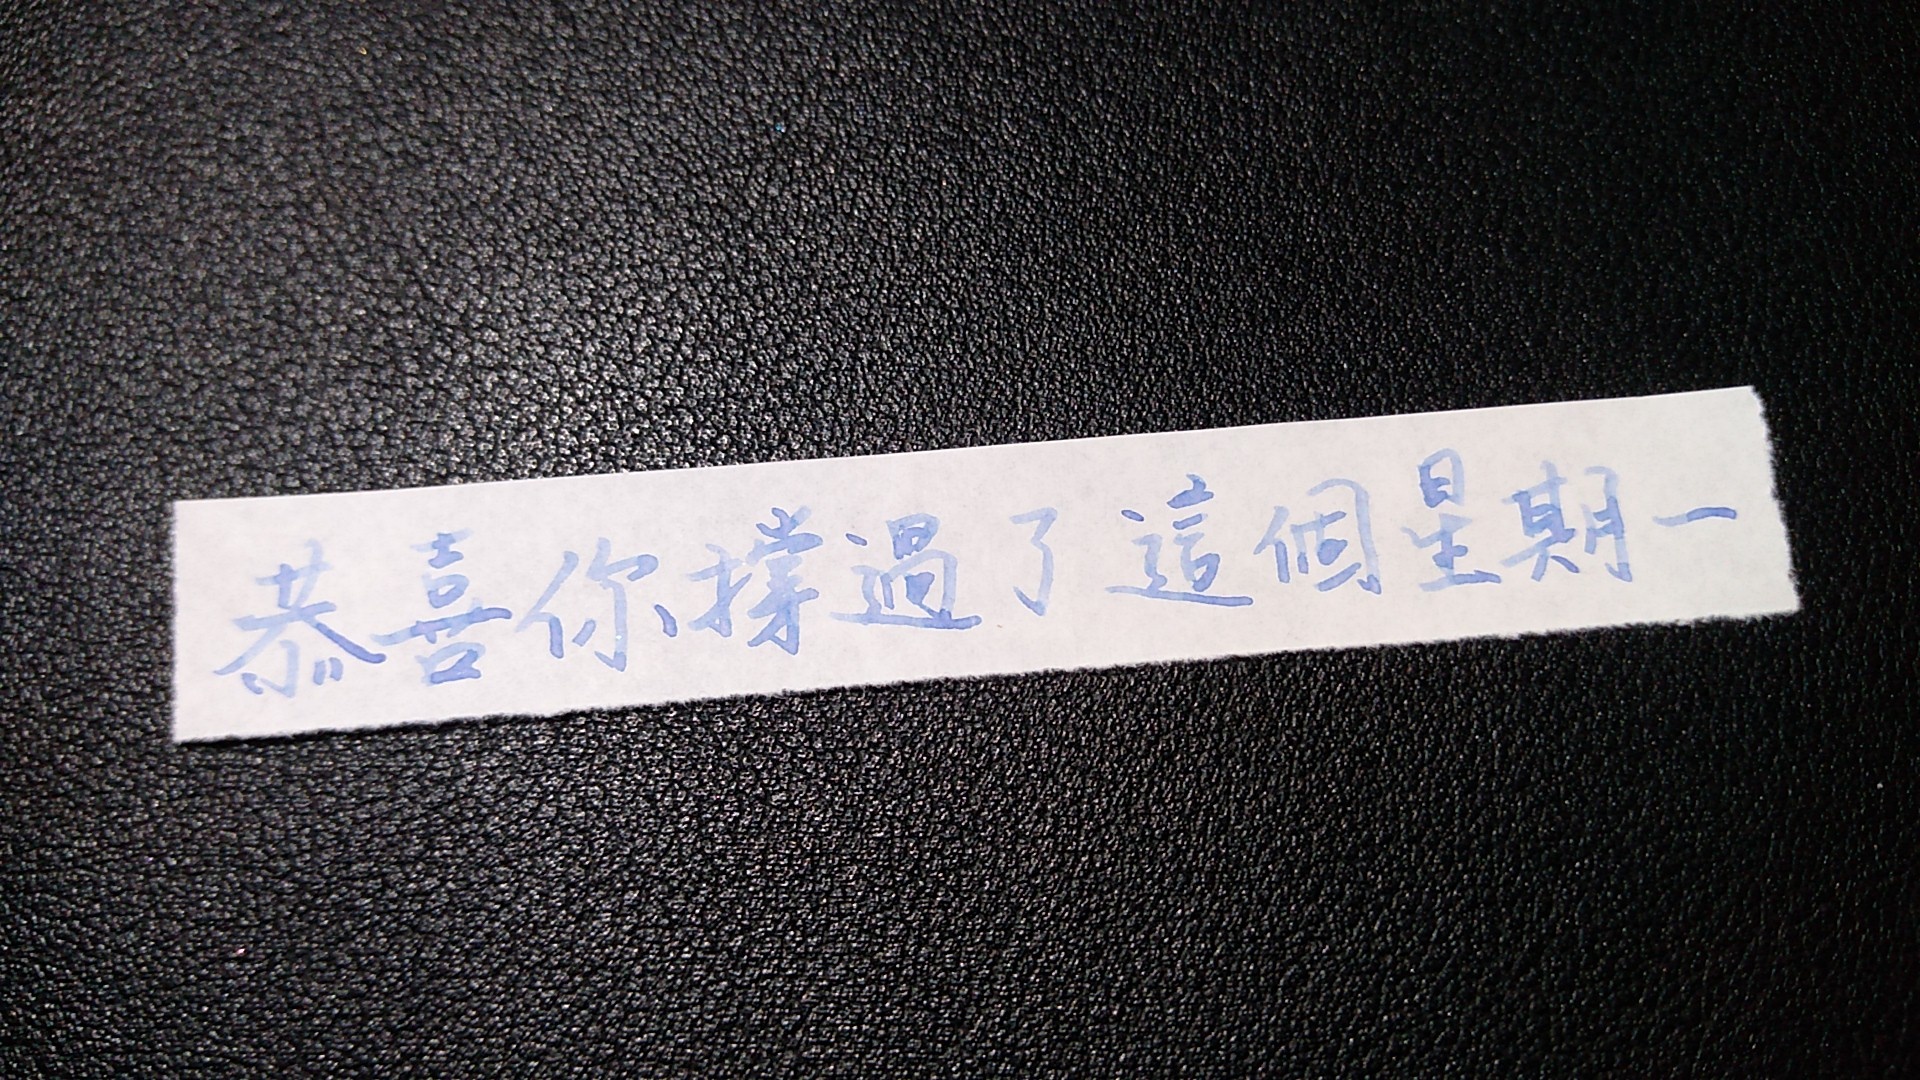 恭喜你撐過了這個星期一